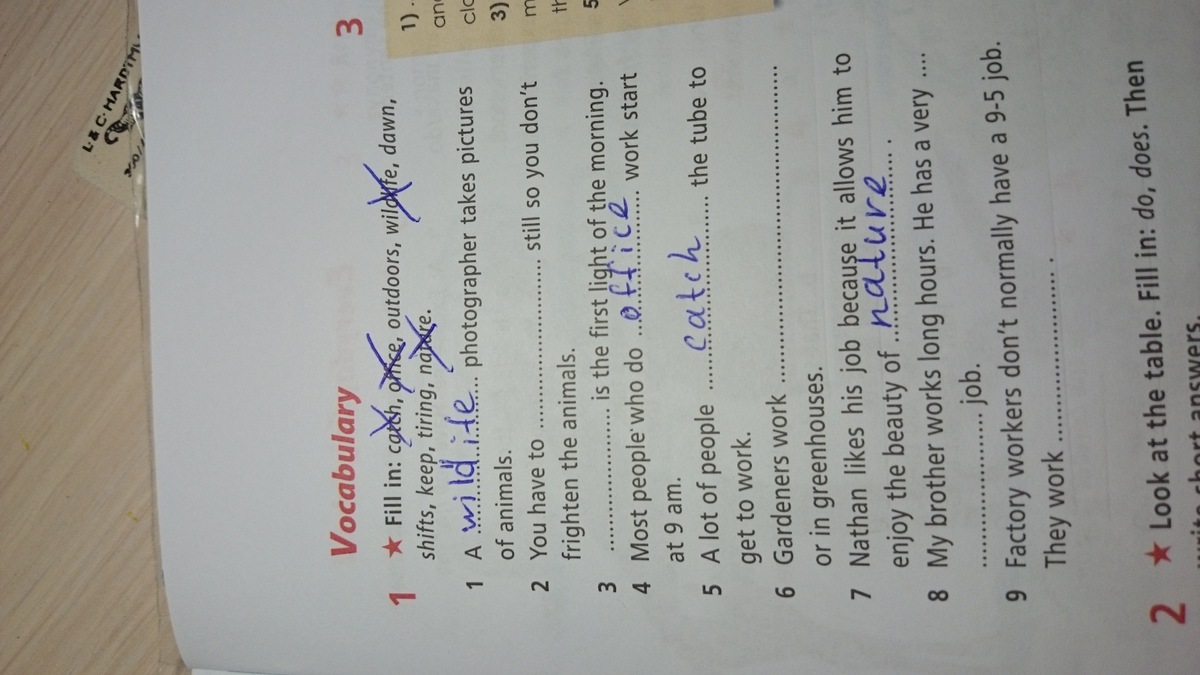 L & C. HARDTMU
Vocabulary
1 ★ Fill in: catch, office, outdoors, wildlife, dawn,
shifts, keep, tiring, nature.
1 A wildlife photographer takes pictures
of animals.
2 You have to .................... still so you don't
frighten the animals.
3 .................... is the first light of the morning.
4 Most people who do office work start
at 9 am.
5 A lot of people catch the tube to
get to work.
6 Gardeners work ....................
or in greenhouses.
7 Nathan likes his job because it allows him to
enjoy the beauty of nature .
8 My brother works long hours. He has a very ....
.................... job.
9 Factory workers don't normally have a 9-5 job.
They work .................... .
2 ★ Look at the table. Fill in: do, does. Then
short answers.
3
1)
and
clo
3)
m
th
5